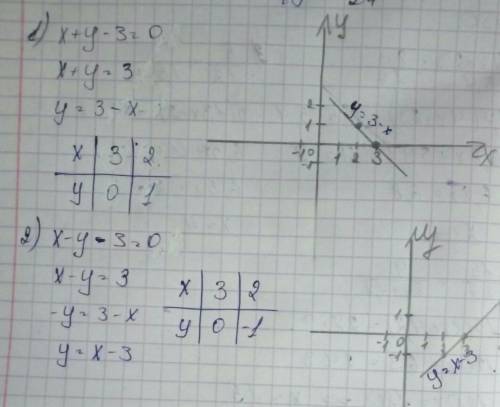 1) x+y-3=0
x+y=3
y=3-x
x 3 2
y 0 1
y
2
1
y=3-x
-1 0 1 2 3 x
-1
2) x-y-3=0
x-y=3
-y=3-x
y=x-3
x 3 2
y 0 -1
y
1
-1 0 1 3
-1
y=x-3